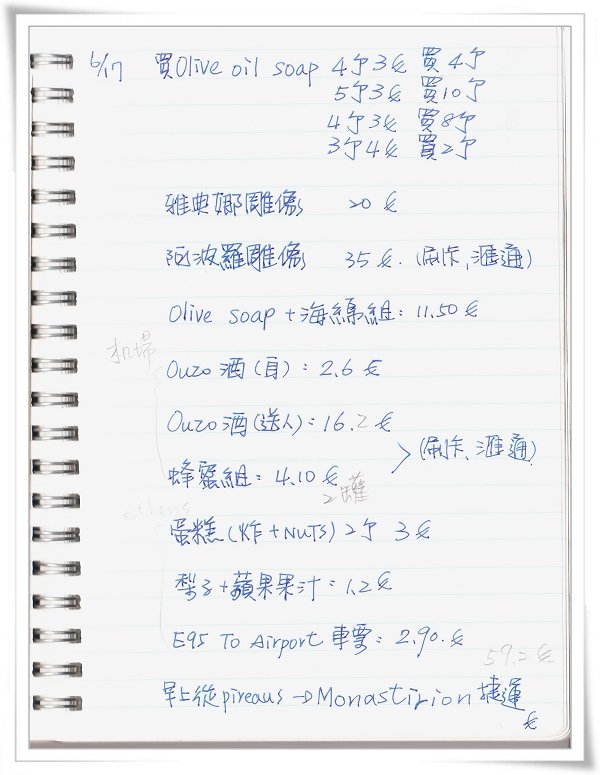 6/17 買Olive oil soap 4个3€ 買4个
5个3€ 買10个
4个3€ 買8个
3个4€ 買2个
雅典娜雕像 20 €
阿波羅雕像 35 €. (刷卡, 滙通)
Olive soap + 海綿組: 11.50 €
机場
Ouzo 酒 (自): 2.6 €
Ouzo 酒 (送人): 16.2 €
(刷卡, 滙通)
蜂蜜組: 4.10 €
2罐
Athens
蛋糕 (炸+NUTS) 2个 3 €
梨子+蘋果果汁: 1.2 €
E95 To Airport 車票: 2.90. €
59.2 €
早上從pireaus → Monastirion 捷運
€